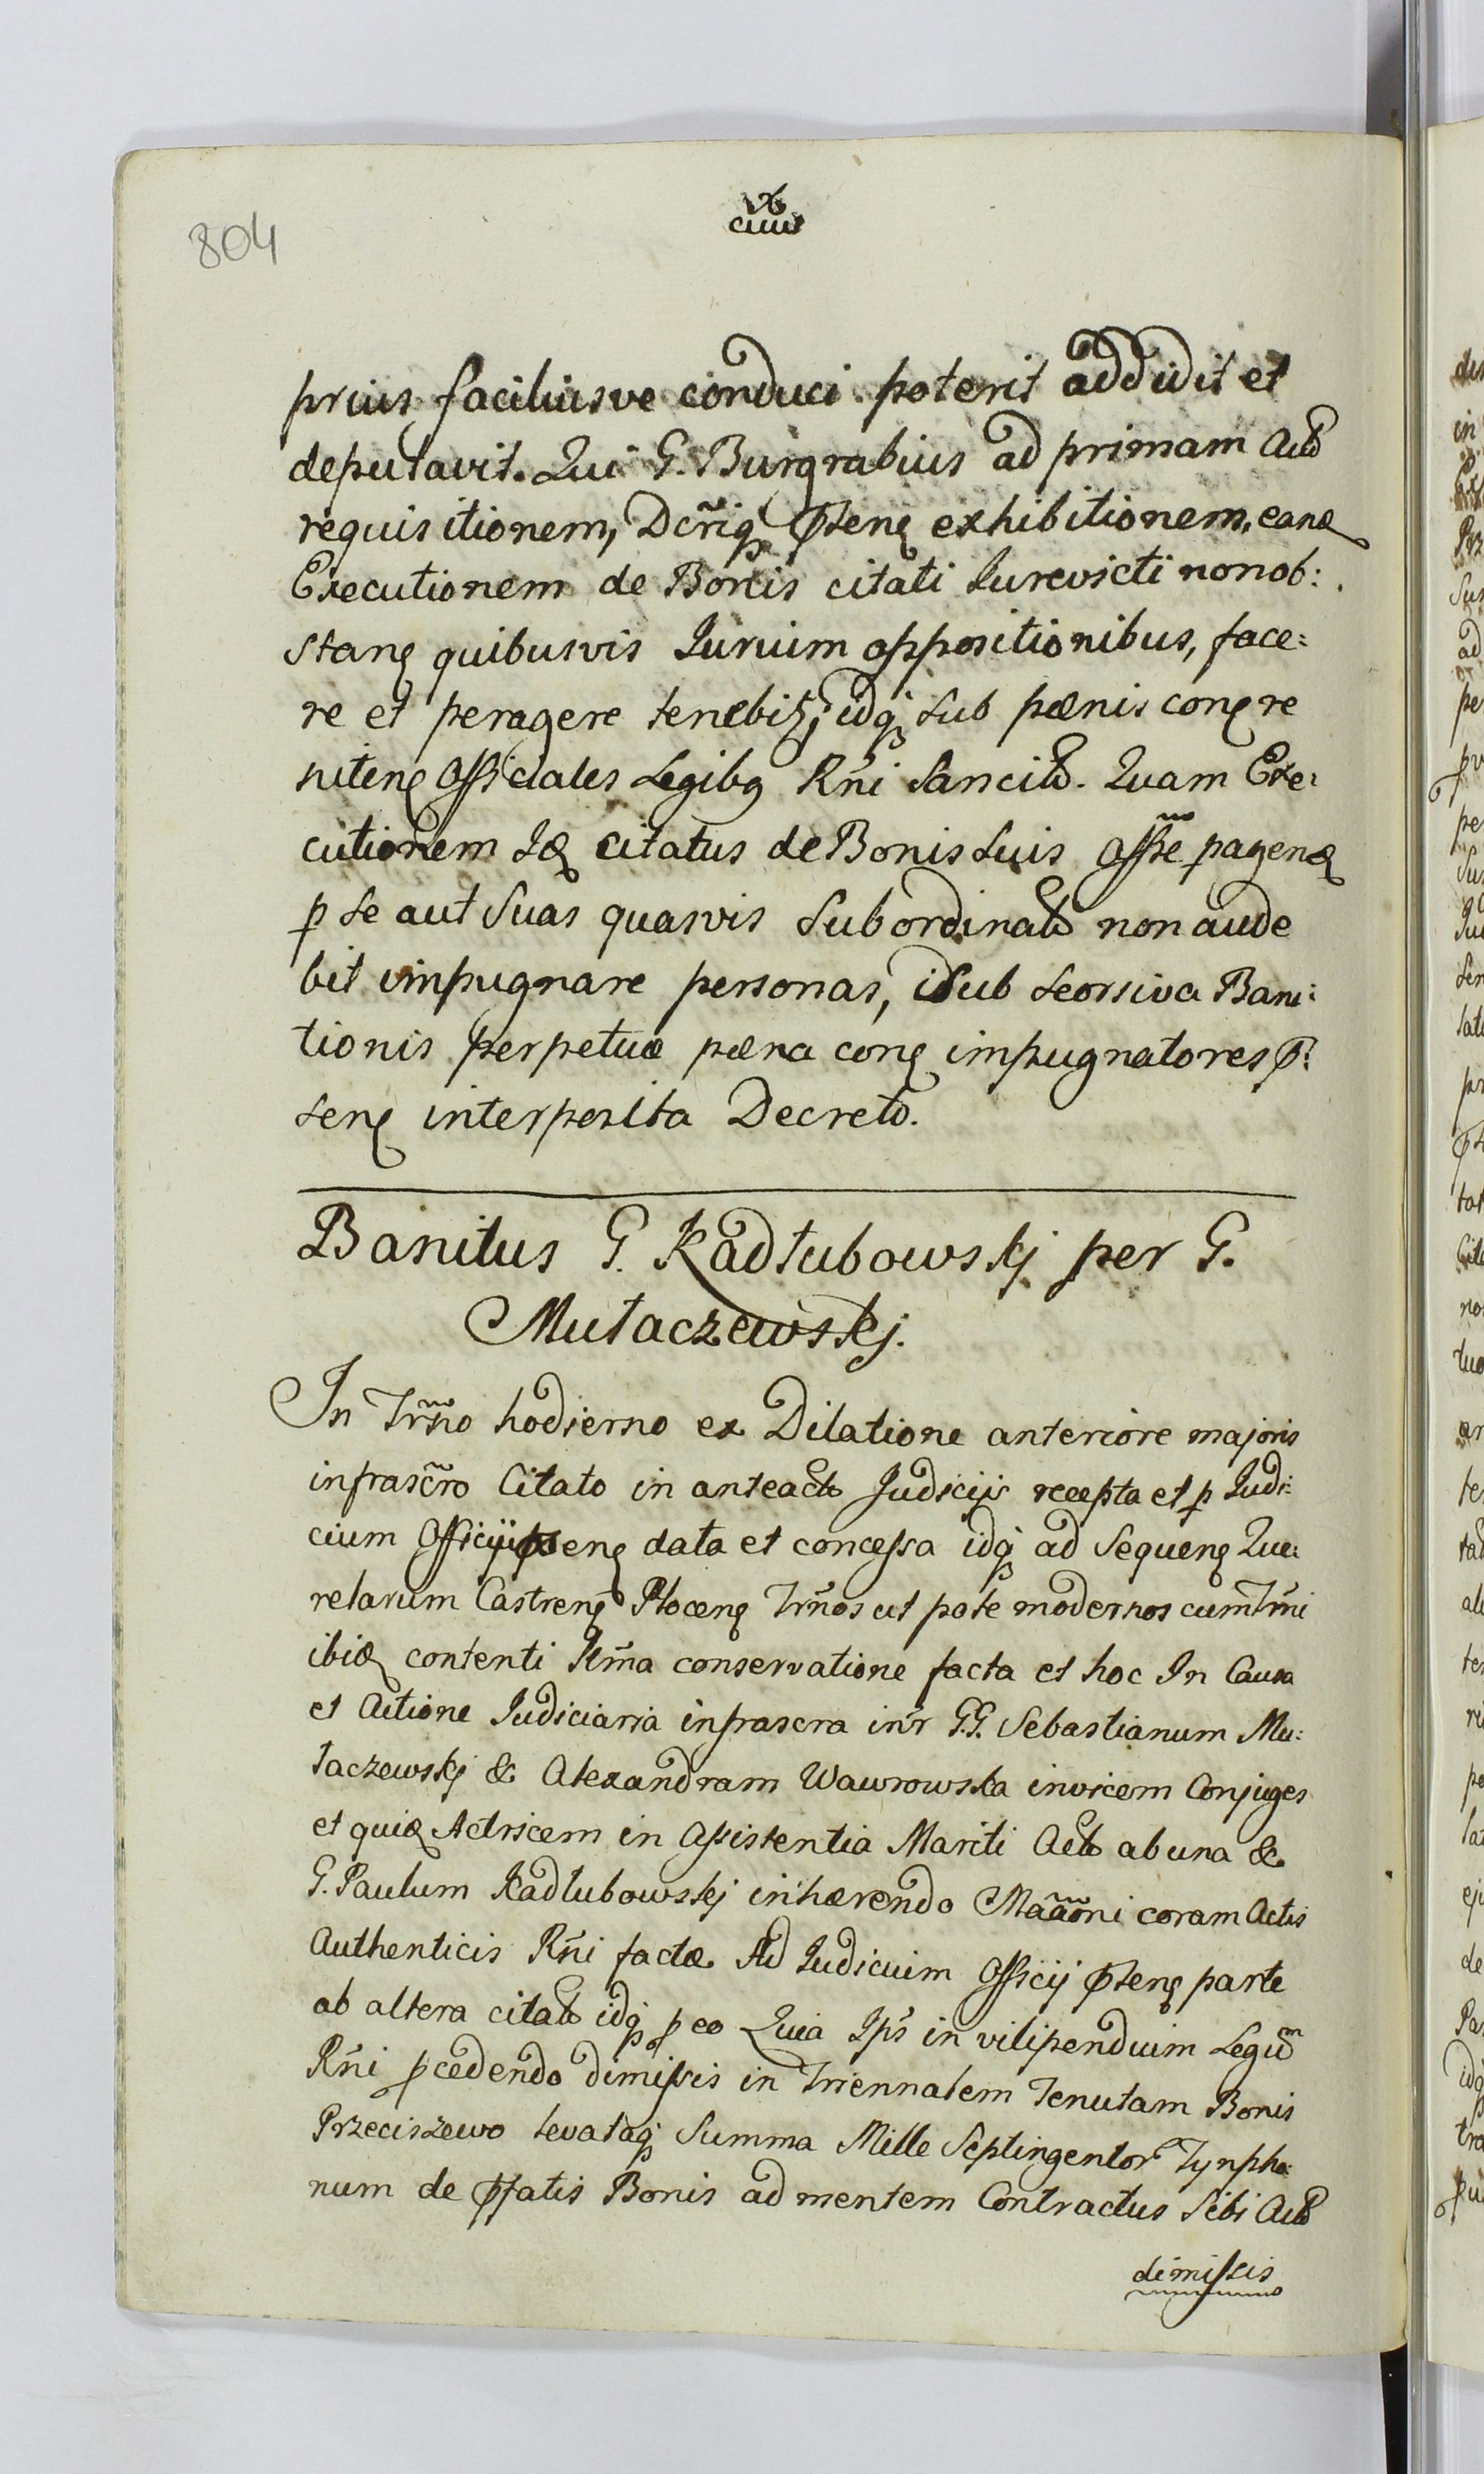 804
prius faciliusve conduci poterit addidit et
deputavit. Qui G. Burgrabius ad primam
requisitionem, Dcr̃iq̨ exhibitionem, eand
Executionem de Bonis citati Jurevicti nonob:
stanꝭ quibusvis Jurium oppositionibus, face:
re et peragere tenebit̨, idq̨ sub pœnis conꝭ re
nitenꝭ Officiales Legibꝫ Rñi Sancit. Quam Exe:
cutionem Id citatus de Bonis suis pagend
ꝑ se aut suas quasvis subordinat non aude
bit impugnare personas, id sub seorsiva Bani:
tionis perpetuæ pœna conꝭ impugnatores p̃:
senꝭ interposita Decreto.
Banitus G. Kadłubowskj per G.
Mutaczewskj.
In Trño hodierno ex Dilatione anteriore majoris
infrascr̃o Citato in anteact Judicijs recepta et ꝑ Judi:
cium Officij p̃senꝭ data et concessa idq̨ ad Sequenꝭ Que:
relarum Castrenꝭ Plocenꝭ Trños ut pote modernos cum Trñi
ibid contenti conservatione facta et hoc In Causa
et Actione Judiciaria infrascra intr̃ G.G. Sebastianum Mu:
taczewskj & Alexandram Wawrowska invicem Conjuges
et quid Actricem in Assistentia Mariti Act ab una &
G. Paulum Kadłubowskj inhærendo coram Actis
Authenticis Rñi factæ Ad Judicium Officij p̃senꝭ parte
ab altera citat idq̨ ꝓ eo Quia Ips̃ in vilipendium Legũm
Rñi ꝓcedendo dimissis in Triennalem Tenutam Bonis
Przeciszewo levataq̨ Summa Mille Septingentor̃ Tynpho:
num de p̃fatis Bonis ad mentem Contractus Sibi
dimissis